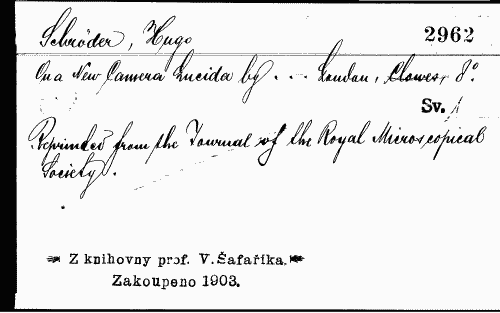 Schröder, Hugo 2962
On a New Camera Lucida by ... London, Clowes, 8°.
Sv. 1
Reprinted from the Journal of the Royal Microscopical
Society.
Z knihovny prof. V. Šafaříka.
Zakoupeno 1903.